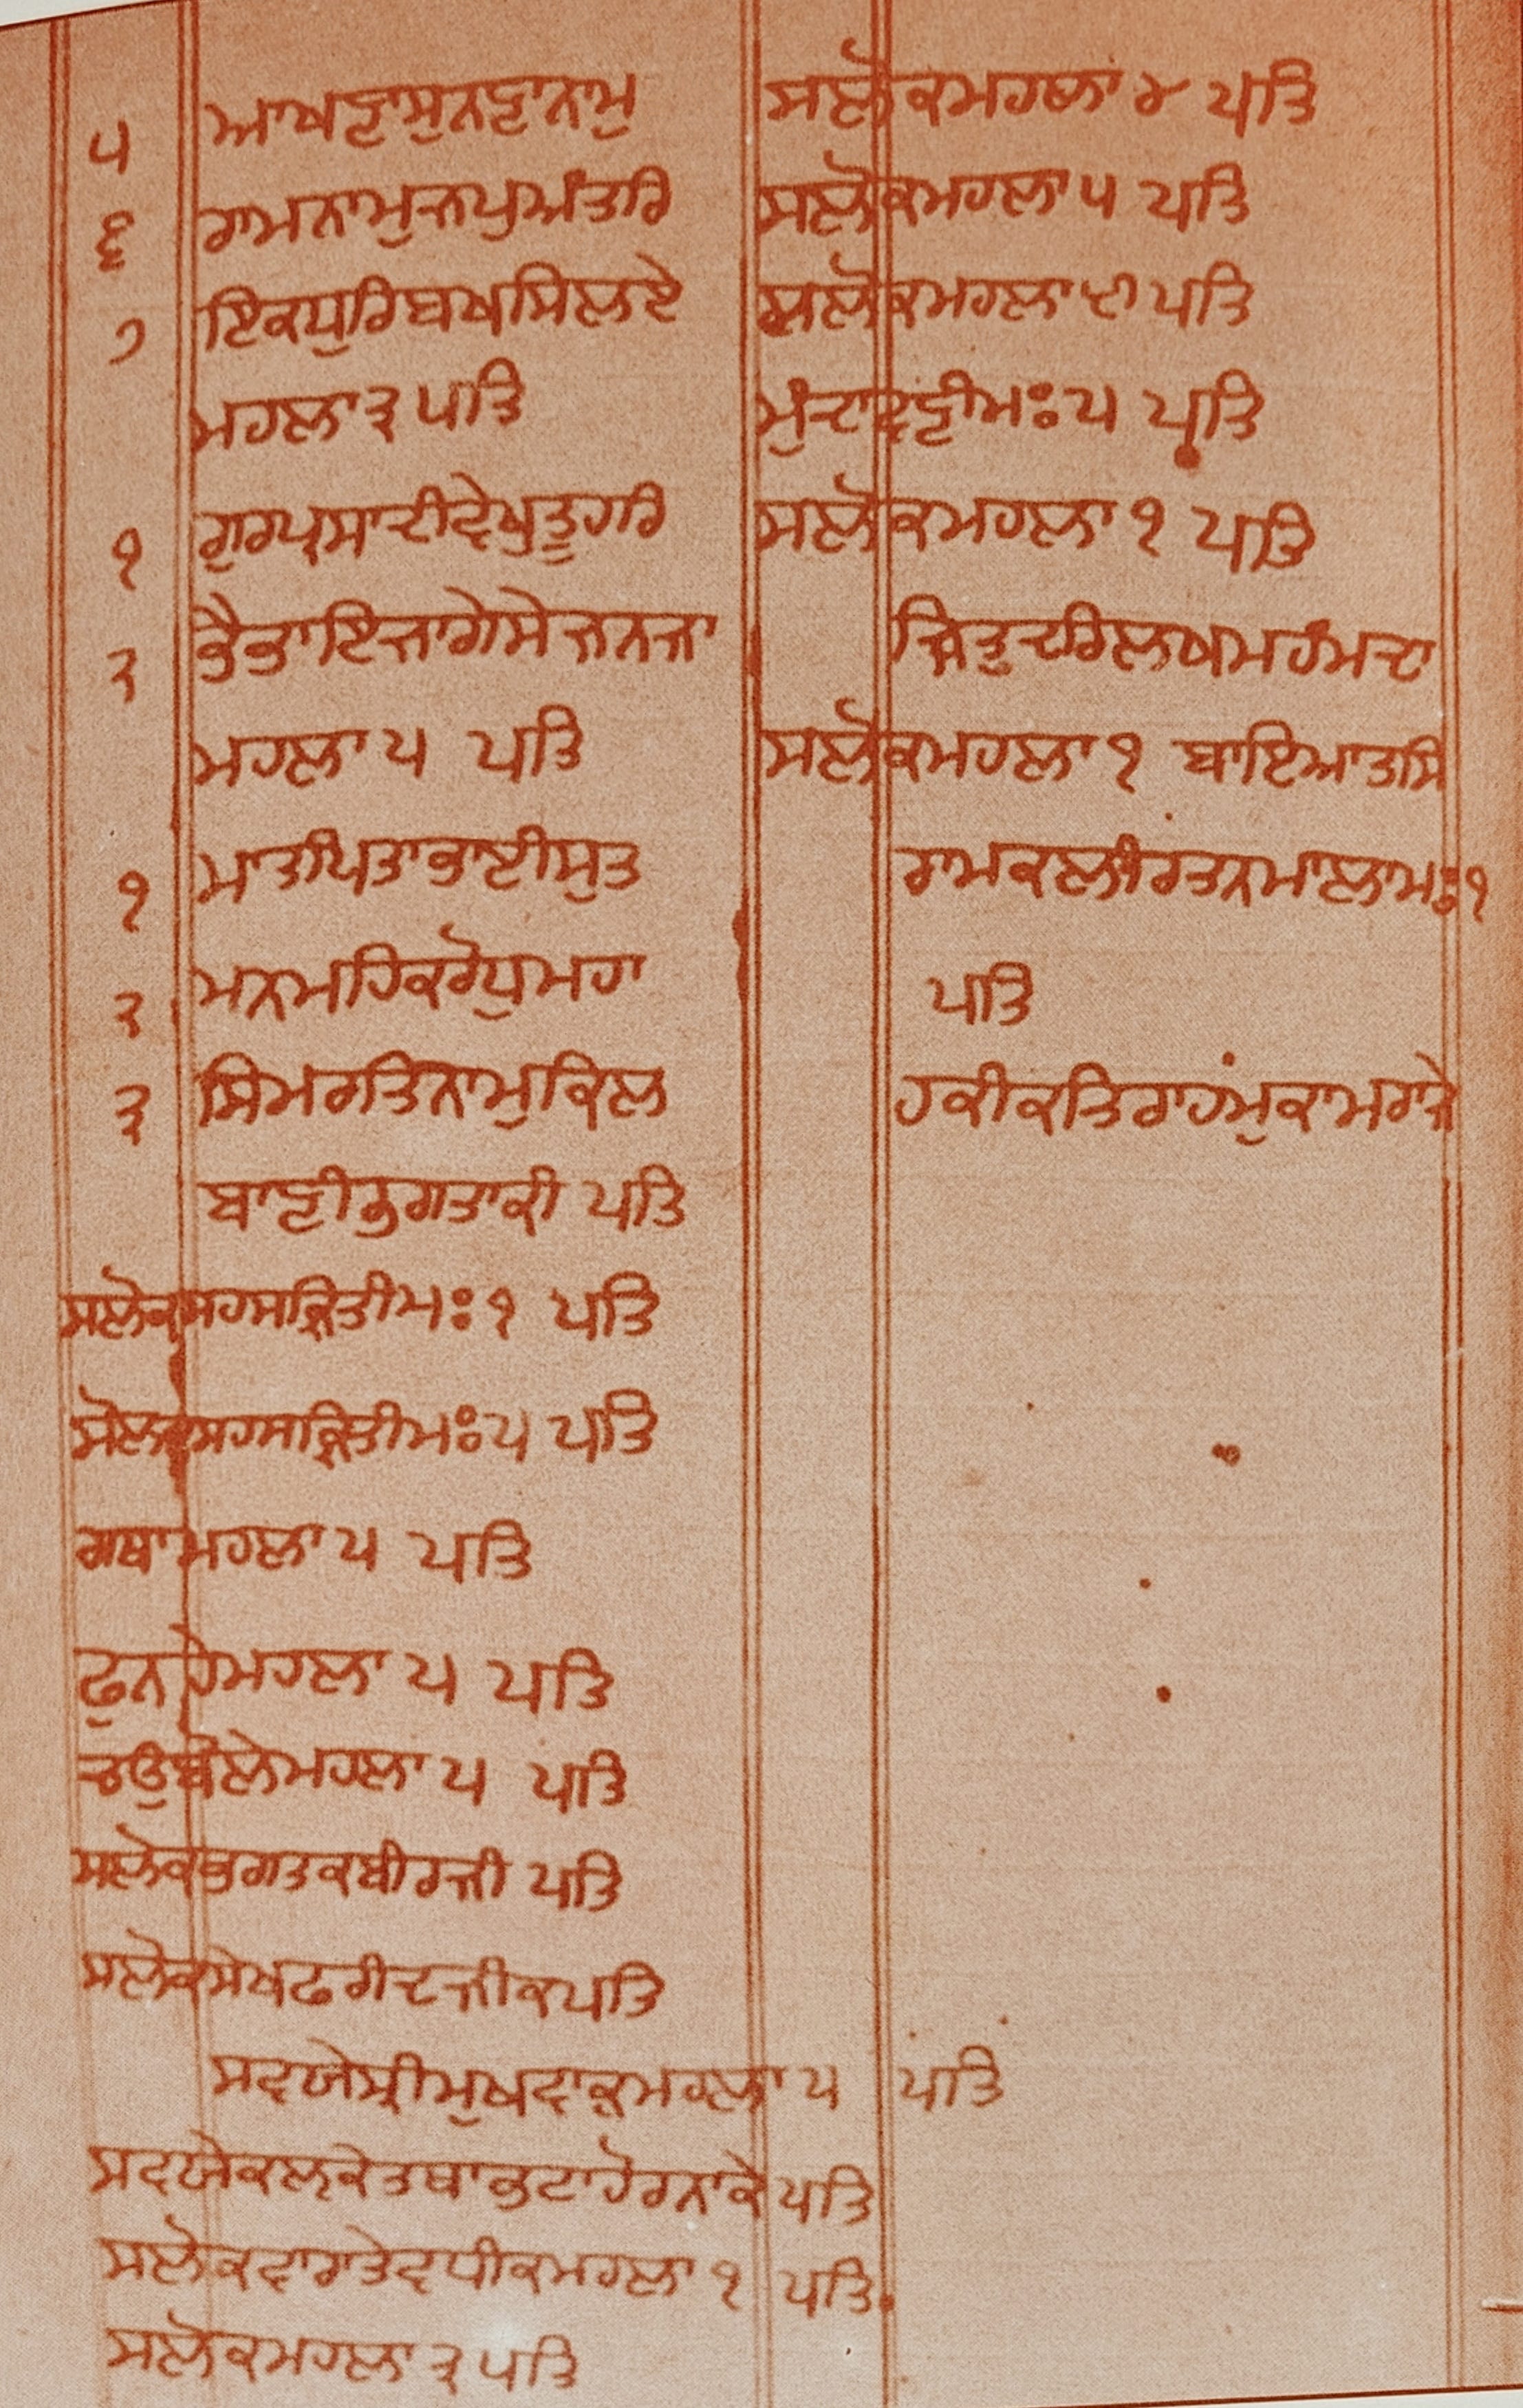 ੫ ਆਖਣਾਸੁਨਣਾਨਾਮੁ
੬ ਰਾਮਨਾਮੁਜਪੁਅੰਤਰਿ
੭ ਇਕਧੁਰਿਬਖਸਿਲਏ
ਮਹਲਾ ੩ ਪਤਿ
੧ ਗੁਰਪਰਸਾਦੀਵੇਖੁਤੂਹਰਿ
੨ ਭੈਭਾਇਜਾਗੇਸੇਜਨਜਾ
ਮਹਲਾ ੫ ਪਤਿ
੧ ਮਾਤਪਿਤਾਭਾਈਸੁਤ
੨ ਮਨਮਹਿਕਰੋਧੁਮਹਾ
੩ ਸਿਮਰਤਿਨਾਮੁਕਿਲ
ਬਾਣੀਭਗਤਾਕੀ ਪਤਿ
ਸਲੋਕਸਹਸਕ੍ਰਿਤੀਮਃ ੧ ਪਤਿ
ਸਲੋਕਸਹਸਕ੍ਰਿਤੀਮਃ ੫ ਪਤਿ
ਗਾਥਾਮਹਲਾ ੫ ਪਤਿ
ਫੁਨਹੇਮਹਲਾ ੫ ਪਤਿ
ਚਉਬੋਲੇਮਹਲਾ ੫ ਪਤਿ
ਸਲੋਕਭਗਤਕਬੀਰਜੀ ਪਤਿ
ਸਲੋਕਸੇਖਫਰੀਦਜੀਕਪਤਿ
ਸਵਯੇਸ੍ਰੀਮੁਖਵਾਕ੍ਯਮਹਲਾ ੫ ਪਤਿ
ਸਵਯੇਕਲ੍ਯਕੇਤਥਾਭਟਾਹੋਰਨਾਕੇ ਪਤਿ
ਸਲੋਕਵਾਰਾਤੇਵਧੀਕਮਹਲਾ ੧ ਪਤਿ
ਸਲੋਕਮਹਲਾ ੩ ਪਤਿ
ਸਲੋਕਮਹਲਾ ੪ ਪਤਿ
ਸਲੋਕਮਹਲਾ ੫ ਪਤਿ
ਸਲੋਕਮਹਲਾ ੯ ਪਤਿ
ਮੁੰਦਾਵਣੀਮਃ ੫ ਪਤਿ
ਸਲੋਕਮਹਲਾ ੧ ਪਤਿ
ਜਿਤੁਦਰਿਲਖਮਹੰਮਦਾ
ਸਲੋਕਮਹਲਾ ੧ ਬਾਇਆਤਸਿ
ਰਾਮਕਲੀਰਤਨਮਾਲਾਮਃ ੧
ਪਤਿ
ਹਕੀਕਤਿਰਾਹਮੁਕਾਮਰਾਜੇ